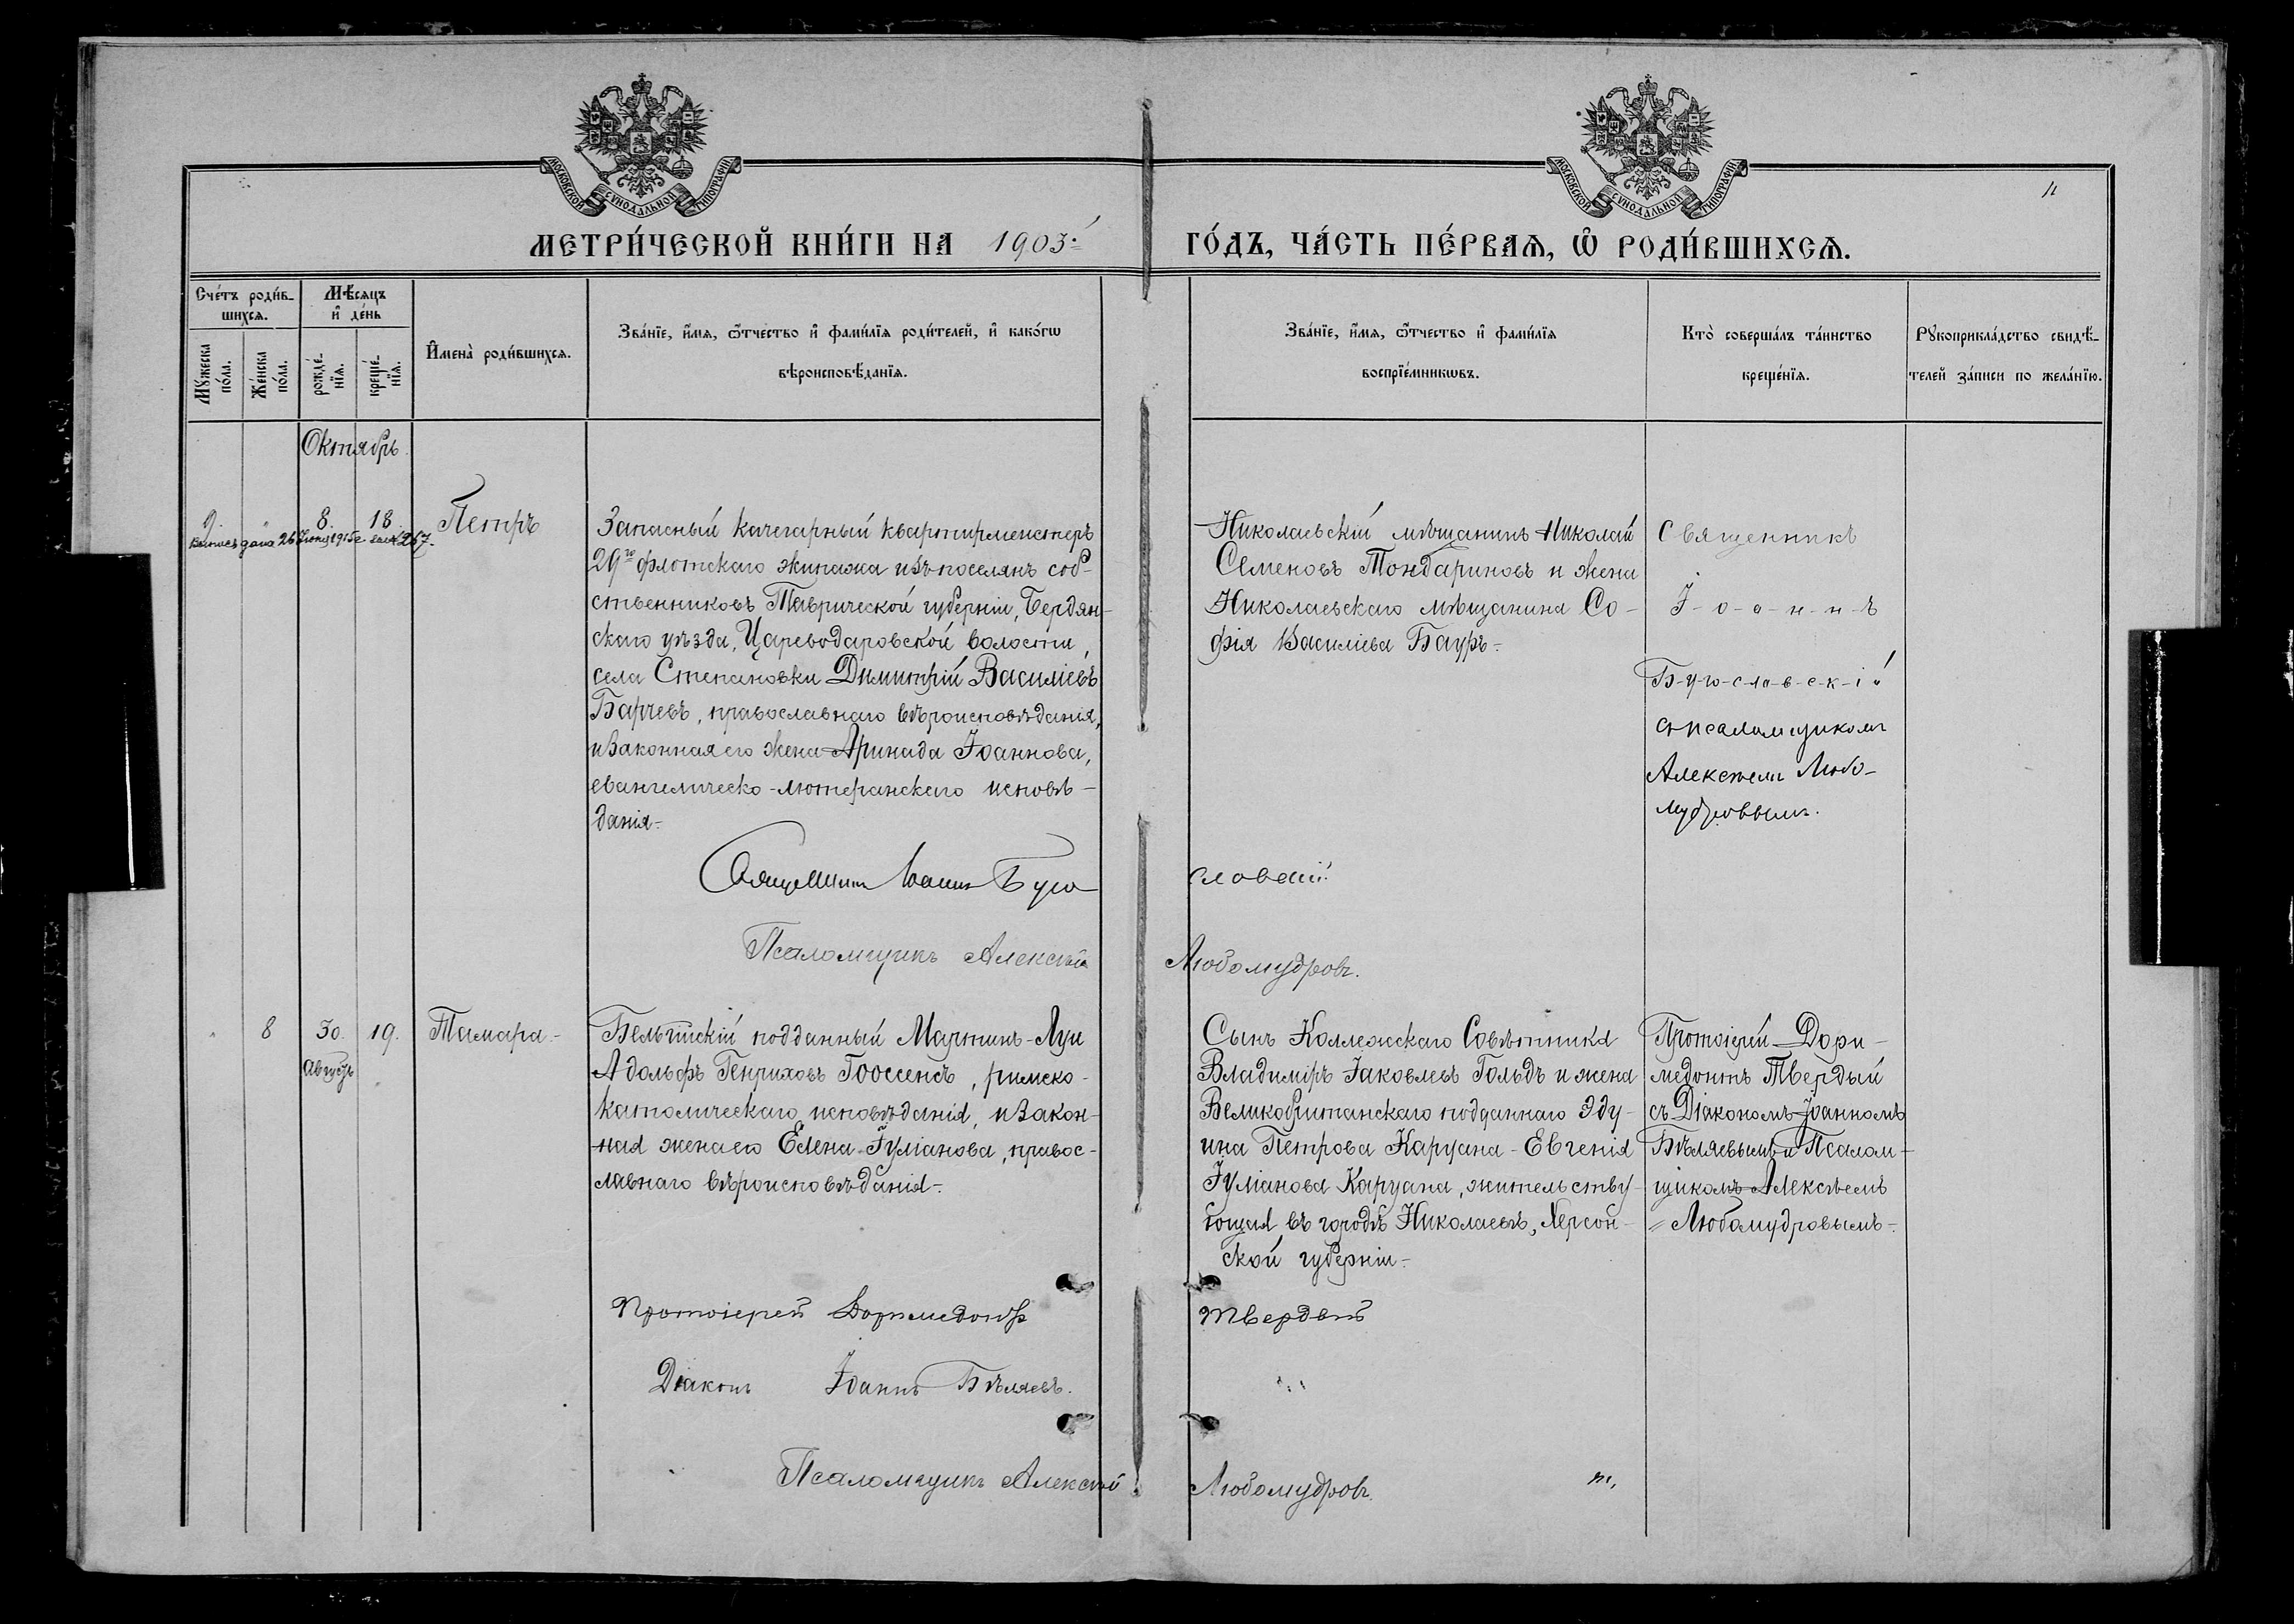 МОСКОВСКОЙ СѴНОДАЛЬНОЙ ТИПОГРАФІИ
МОСКОВСКОЙ СѴНОДАЛЬНОЙ ТИПОГРАФІИ
11
МЕТРИ́ЧЕСКОЙ КНИ́ГИ НА 1903: ГО́ДЪ, ЧА́СТЬ ПЕ́РВАѦ, Ѿ РОДИ́ВШИХСѦ.
Сче́тъ роди́в-
шихсѧ.
Мѣ́сѧцъ
и҆ де́нь
Мꙋ́жеска
по́ла.
Же́нска
по́ла.
рожде́-
нїѧ.
креще́-
нїѧ.
И҆мена̀ роди́вшихсѧ.
Зва́нїе, и҆́мѧ, ѻ҆́тчество и҆ фами́лїѧ роди́телей, и҆ како́гѡ
вѣроисповѣ́данїѧ.
Зва́нїе, и҆́мѧ, ѻ҆́тчество и҆ фами́лїѧ
воспрїе́мникѡвъ.
Кто̀ соверша́лъ та́инство
креще́нїѧ.
Рꙋкоприкла́дство свидѣ́-
телей за́писи по жела́нїю.
Октябрь
9. " 8. 18. Петръ
дана 26 Іюня 1915 г. 267.
Запасный кочегарный квартирмейстеръ
29го флотскаго экипажа изъ поселянъ соб-
ственниковъ Таврической губерніи, Бердян-
скаго уѣзда, Цареводаровской волости,
села Степановки Димитрій Василіевъ
Барчевъ, православнаго вѣроисповѣданія,
и законная его жена Аринада Іоаннова,
евангелическо-лютеранскаго исповѣ-
данія.
Николаевскій мѣщанинъ Николай
Семеновъ Тондариновъ и жена
Николаевскаго мѣщанина Со-
фія Василіева Бауръ.
Священникъ
І-о-а-н-н-ъ
Б-у-г-о-с-л-а-в-с-к-і-й
съ псаломщикомъ
Алексѣемъ Любо-
мудровымъ.
Священникъ Іоаннъ Буго
словскій
Псаломщикъ Алексѣй Любомудровъ.
8 30. 19. Тамара.
Августъ
Бельгійскій подданный Мартинъ-Луи
Адольфъ Генриховъ Гооссенсъ, римско-
католическаго исповѣданія, и закон-
ная жена его Елена Іуліанова, правос-
лавнаго вѣроисповѣданія.
Сынъ Коллежскаго Совѣтника
Владиміръ Іаковлевъ Гольдъ и жена
Великобританскаго подданнаго Эду-
ина Петрова Каруана - Евгенія
Іуліанова Каруана, жительству-
ющая въ городѣ Николаевѣ, Херсон-
ской губерніи.
Протоіерей Дори-
медонтъ Твердый
съ Діакономъ Іоанномъ
Бѣляевымъ и Псалом-
щикомъ Алексѣемъ
Любомудровымъ.
Протоіерей Доримедонтъ Твердый
Діаконъ Іоаннъ Бѣляевъ.
Псаломщикъ Алексѣй Любомудровъ.